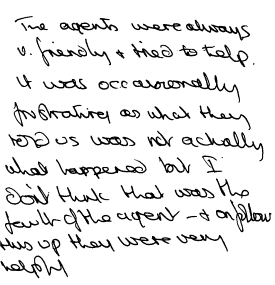 The agents were always
v. friendly & tried to help.
It was occasionally
frustrating as what they
told us was not actually
what happened but I
don't think that was the
fault of the agent - & on follow
this up they were very
helpful